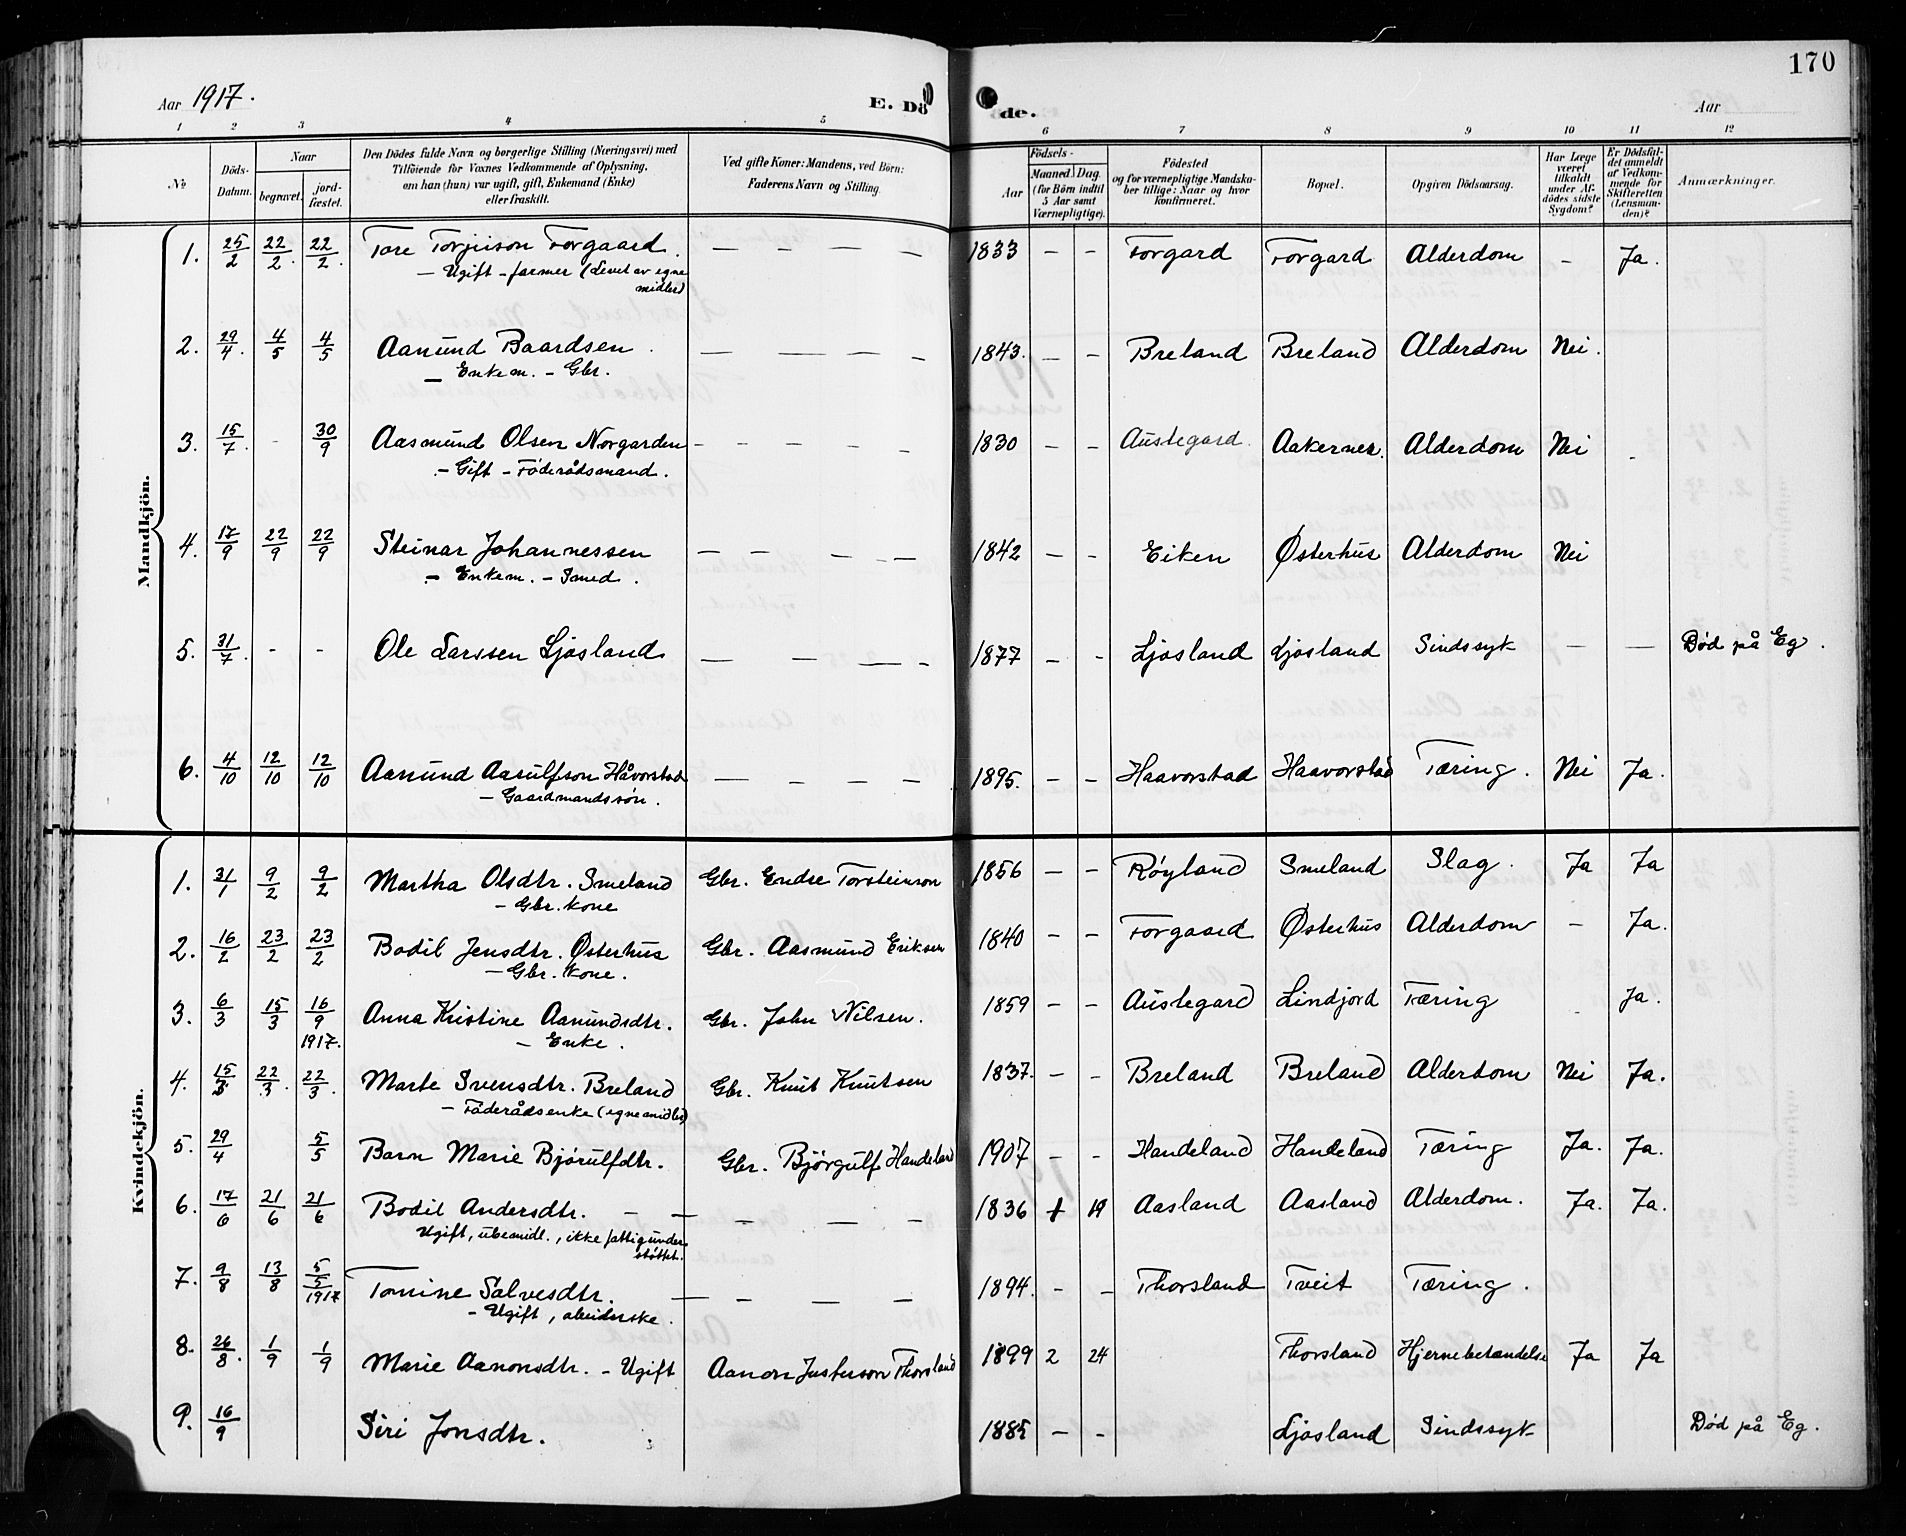 Aar 1917. E. Dö de. Aar 170
1 2 3 4 5 6 7 8 9 10 11 12
No
Döds-Datum.
Naar
begravet.
jord-fæstet.
Den Dödes fulde Navn og borgerlige Stilling (Næringsvei) med
Tilföiende for Voxnes Vedkommende af Oplysning,
om han (hun) var ugift, gift, Enkemand (Enke)
eller fraskilt.
Ved gifte Koner: Mandens, ved Börn:
Faderens Navn og Stilling.
Födsels-
Aar
Maaned. Dag.
(for Börn indtil
5 Aar samt
Værnepligtige).
Födested
og for værnepligtige Mandska-
ber tillige: Naar og hvor
konfirmeret.
Bopæl.
Opgiven Dödsaarsag.
Har Læge
været
tilkaldt
under Af-
dödes sidste
Sygdom?
Er Dödsfal-
det anmeldt
af Vedkom-
mende for
Skifteretten
(Lensman-
den)?
Anmærkninger.
Mandkjön.
1. 25/2 22/2. 22/2. Tore Torjuson Forgaard. — — — — 1833 – – Forgard Forgard Alderdom – Ja.
— Ugift – farmer (Levet av egne
midler)
2. 29/4. 4/5 4/5 Aanund Baardsen. — — — – 1843. – – Breland Breland Alderdom Nei.
— Enkem. – Gbr.
3. 15/7. - 30/9 Aasmund Olsen Norgarden – – – – – 1830 – – Austegard. Aakernes. Alderdom Nei -
– Gift – Föderådsmand.
4. 17/9 22/9 22/9 Steinar Johannessen — – — — 1842 – – Eiken Østerhus Alderdom Nei
– Enkem. – Smed.
5. 31/7. - - Ole Larssen Ljosland — — — – 1877 – - Ljosland Ljosland Sindssyk — — Død på Eg.
6. 4/10 12/10 12/10 Aanund Aasulfson Håvorstad — – — — 1895. – – Haavorstad Haavorstad Tæring. Nei Ja.
– Gaardmandssøn.
Kvindekjön.
1. 31/1 9/2 9/2 Martha Olsdtr. Smeland Gbr. Endre Torsteinson 1856 – – Röyland Smeland Slag. Ja Ja
– Gbr. kone
2. 16/2 23/2 23/2 Bodil Jensdtr. Østerhus Gbr. Aasmund Eriksen 1840 – – Forgaard Østerhus Alderdom – Ja.
– Gbr. kone.
3. 6/3 15/3 16/9 1917. Anna Kristine Aanundsdtr. Gbr. John Nilsen. 1859 – – Austegard Lindjord Tæring Ja.
– Enke.
4. 15/3 22/3. 22/3. Marte Svensdtr. Breland Gbr. Knut Knutsen 1837. – – Breland Breland Alderdom Nei Ja.
– Föderådsenke (egne midler)
5. 29/4 5/5 Barn Marie Bjørulfdtr. Gbr. Bjørgulf Handeland 1907 – – Handeland Handeland Tæring Ja. Ja.
6. 17/6 21/6 21/6 Bodil Andersdtr. – — – — – 1836 19 Aasland Aasland Alderdom. Ja. Ja.
Ugift, ubemidl., ikke fattigunder
støttet.
7. 9/8 13/8 5/5 1917 Tomine Salvesdtr. — – — – 1894. – – Thorsland Tveit Tæring.
– Ugift, arbeiderske.
8. 26/8. 1/9 1/9 Marie Aanonsdtr. – Ugift Aanon Justenson Thorsland 1899 2 24 Thorsland Hjernebetændelse Ja Ja
9. 16/9 Siri Jonsdtr. 1885 – – Ljosland Sindssyk Død på Eg.